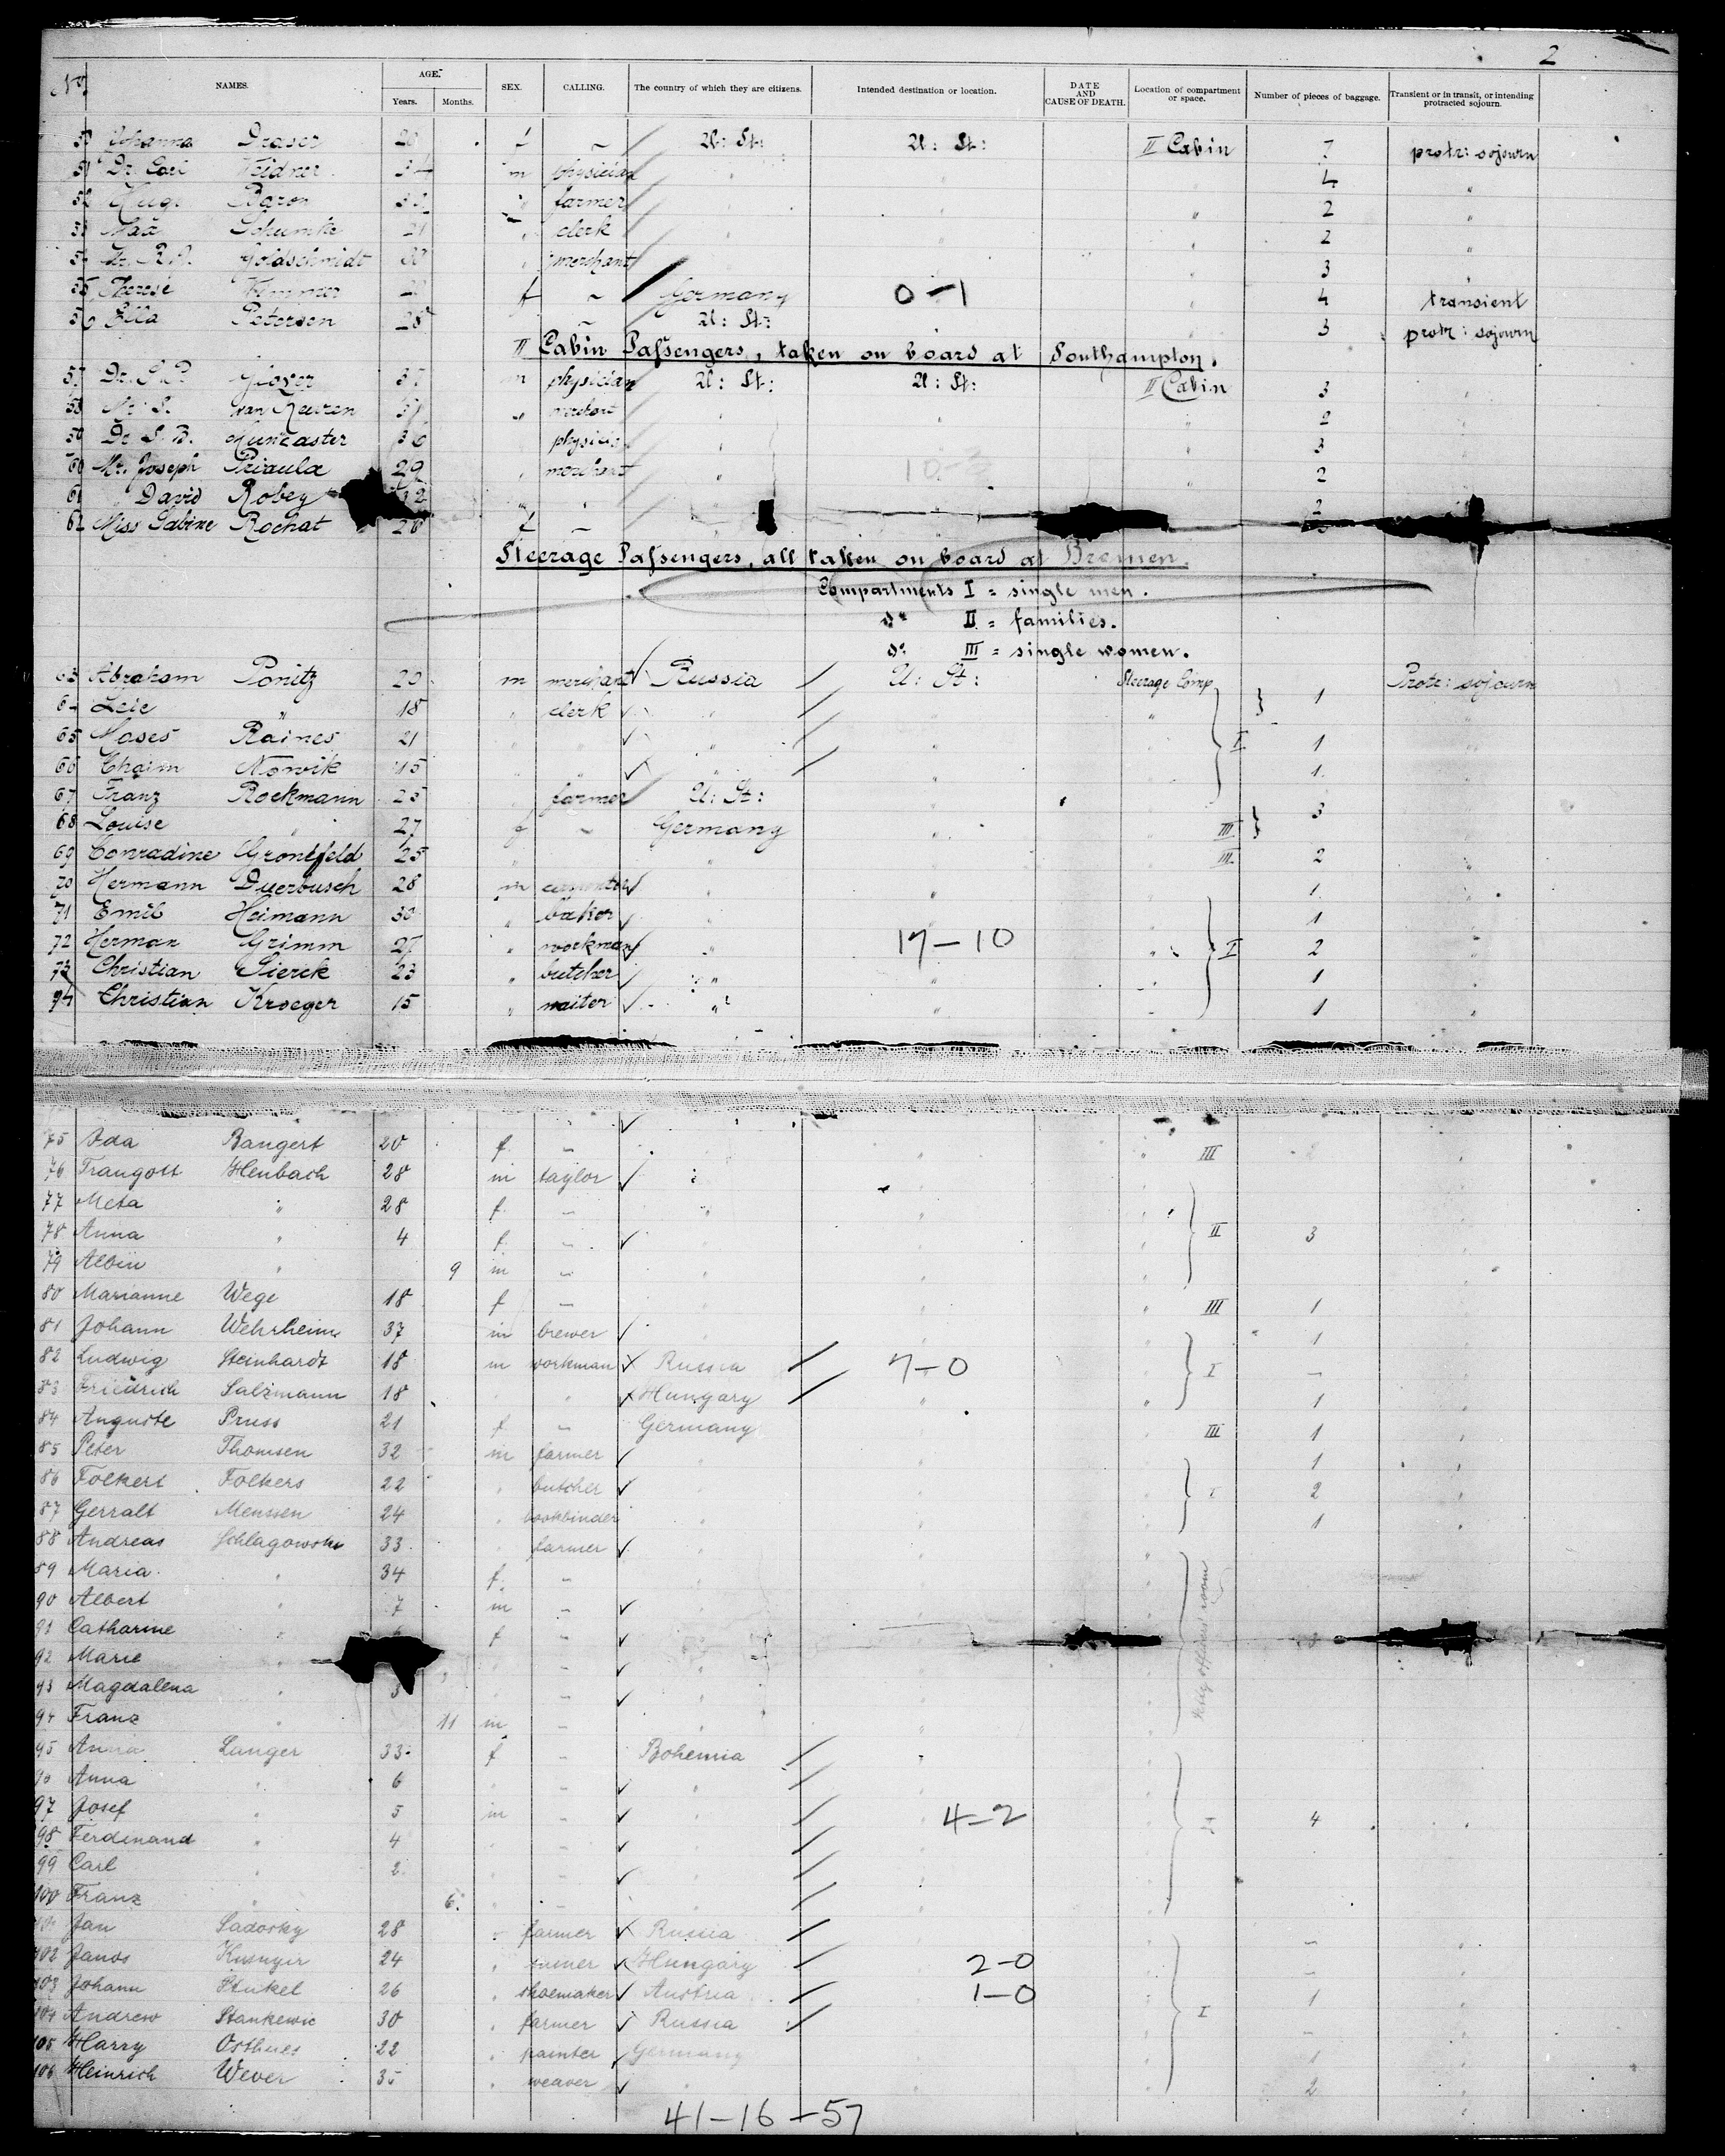 2
No. NAMES. AGE. Years. Months. SEX. CALLING. The country of which they are citizens. Intended destination or location. DATE AND CAUSE OF DEATH. Location of compartment or space. Number of pieces of baggage. Transient or in transit, or intending protracted sojourn.
50 Johanna Draser 20 f ~ U: St: U: St: II Cabin 7 protr: sojourn
51 Dr. Carl Weidner m physician " " " 4 "
52 Hugo Baron " farmer " " " 2 "
53 Max Schumke 21 " clerk " " " 2 "
54 Mr. R. Goldschmidt 30 " merchant " " " 3 "
55 Therese f ~ Germany 0-1 " 4 transient
56 Ella Petersen 28 ~ U: St: " 3 protr: sojourn
II Cabin Passengers, taken on board at Southampton.
57 Dr. S. P. Glover 37 m physician U: St: U: St: II Cabin 3 "
58 Mr. S. van Keuren 37 " merchant " " " 2 "
59 Dr. S. B. Muncaster 36 physician " " 3
60 Mr. Joseph Priaula 29 " merchant " 10-2 2
61 " David Robey 32 " " " 2
62 Miss Sabine Rochat 26 f ~
Steerage Passengers, all taken on board at Bremen.
Compartments I = single men.
do II = families.
do III = single women.
63 Abraham Ponitz 20 m merchant Russia U: St: Steerage Comp Protr: sojourn
64 Leie " 18 " clerk " " " 1 "
65 Moses Raines 21 " " " " " I 1 "
66 Chaim Nowik 15 " " " " " 1 "
67 Franz Rockmann 25 " farmer U: St: " " 3
68 Louise " 27 f ~ Germany " " III "
69 Conradine Grontfeld 25 " " " " III 2 "
70 Hermann Duerbusch 28 m carpenter " " 1 "
71 Emil Heimann 30 " baker " " 1 "
72 Herman Grimm 27 " workman " 17-10 " I 2 "
73 Christian Sierck 23 " butcher " " " 1 "
74 Christian Kroeger 15 " waiter " " " 1 "
75 Ida Bangert 20 f. ~ " " III 2 "
76 Traugott Heubach 28 m taylor " "
77 Meta " 28 f. ~ " " "
78 Anna " 4 f. ~ " " II 3 "
79 Albin " 9 m ~ " " "
80 Marianne Wege 18 f ~ " " " III 1 "
81 Johann Wehrheim 37 m brewer " " " 1 "
82 Ludwig Steinhardt 18 m workman Russia 7-0 " I — "
83 Friedrich Salzmann 18 " " Hungary " " 1 "
84 Auguste Pruss 21 f ~ Germany " III 1 "
85 Peter Thomsen 32 m farmer " " 1 "
86 Folkert Folkers 22 " butcher " " " I 2 "
87 Gerralt Menssen 24 " bookbinder " " " 1 "
88 Andreas Schlagowski 33 " farmer " " "
89 Maria " 34 f. ~ " "
90 Albert " 7 m ~ " "
91 Catharine " f ~ " "
92 Marie " " ~ " "
93 Magdalena " 3 " ~ " "
94 Franz " 11 m ~ " "
95 Anna Langer 33 f ~ Bohemia "
96 Anna " 6 " ~ " "
97 Josef " 5 m ~ " 4-2 4 "
98 Ferdinand " 4 " ~ " "
99 Carl " 2 " ~ " "
100 Franz " 6 " ~ " "
101 Jan Sadosky 28 " farmer Russia " — "
102 Janos 24 " Hungary 2-0 — "
103 Johann Stukel 26 " shoemaker Austria 1-0 1 "
104 Andrew Stankewic 30 " farmer Russia " I — "
105 Harry Osthues 22 " painter Germany " 1 "
106 Heinrich Wever 35 " weaver " " 2 "
41-16-57